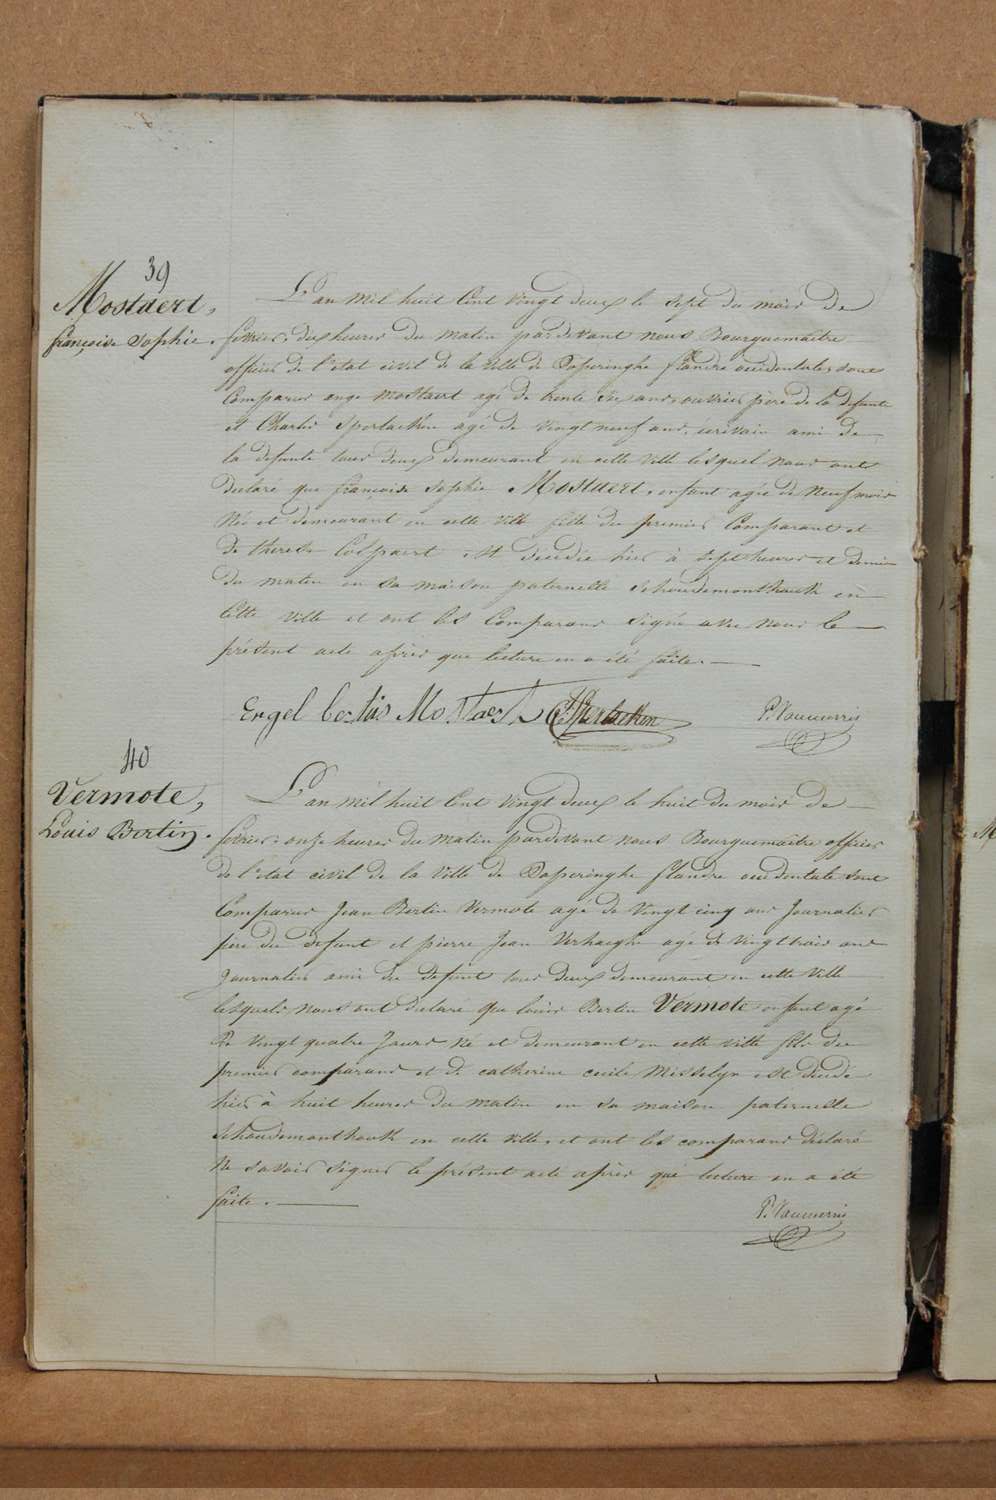 39
Mostaert,
françoise Sophie.
L'an mil huit Cent vingt deux le sept du mois de
fevrier, dix heures du matin pardevant nous Bourguemaître
officier de l'etat civil de la ville de Poperinghe flandre occidentale, sont
Comparus ange Mostaert agé de trente six ans, ouvrier père de la defunte
et Charles Sperlaeken agé de vingt neuf ans, ecrivain ami de
la defunte tous deux demeurant en cette ville lesquel nous ont
declaré que françoise Sophie Mostaert, enfant agée de Neuf mois
Née et demeurant en cette ville fille du premier Comparant et
de therese Colpaert est decedée hier à sept heures et demie
du matin en sa maison paternelle Schoudemonthouk en
Cette ville et ont les Comparans signé avec nous le
présent acte après que lecture en a été faite.
Engel bertus Mostaert C: Sperlaeken P. Vanmerris
40
Vermote,
Louis Bertin.
L'an mil huit Cent vingt deux le huit du mois de
fevrier, onze heures du matin pardevant nous Bourguemaître officier
de l'etat civil de la ville de Poperinghe flandre occidentale sont
Comparus Jean Bertin Vermote agé de vingt cinq ans Journalier
père du defunt et pierre Jean Verhaeghe agé de vingt trois ans
Journalier ami du defunt tous deux demeurant en cette ville
lesquels nous ont declaré que louis Bertin Vermote enfant agé
De vingt quatre Jours Né et demeurant en cette ville fils du
premier comparans et de catherine cecile Misselyn est decedé
hier à huit heures du matin en sa maison paternelle
Schoudemonthouk en cette ville, et ont les comparans déclaré
Ne savoir signer le présent acte après que lecture en a été
faite.
P. Vanmerris
M